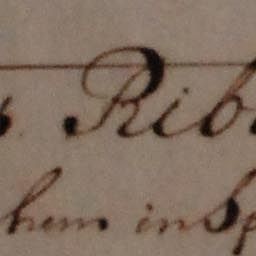 s. Rib
hem in Sp